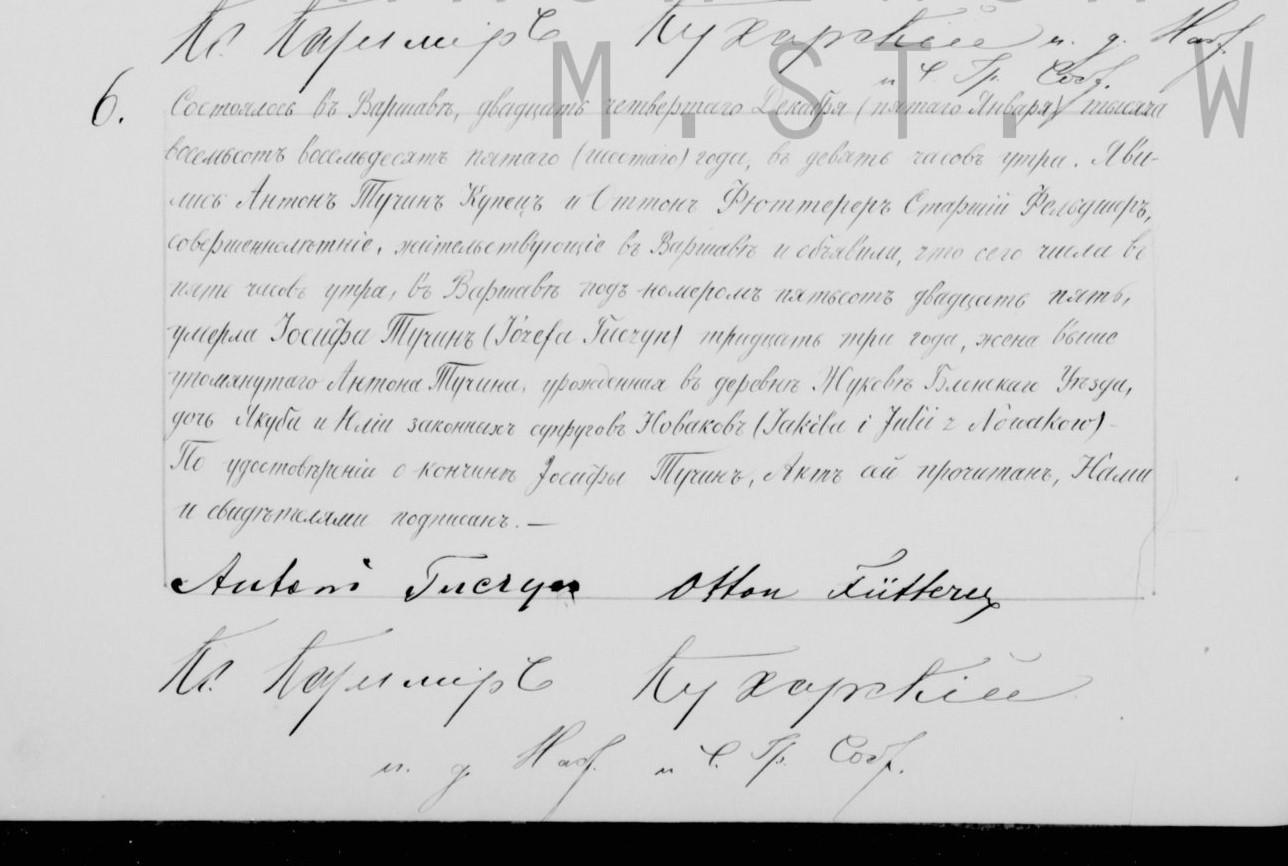 Кс. Казимиръ Кухарскій и. д. Наст.
и Ч. Гр. Сост.
M . ST . W
6.
Состоялось въ Варшавѣ, двадцать четвертаго Декабря (пятаго Января) тысяча
восемьсотъ восемьдесятъ пятаго (шестаго) года, въ девять часовъ утра. Яви-
лись Антонъ Тучинъ Купецъ и Оттонъ Фюттереръ Старшій Фельдшеръ,
совершеннолѣтніе, жительствующіе въ Варшавѣ и объявили, что сего числа въ
пять часовъ утра, въ Варшавѣ подъ номеромъ пятьсотъ двадцать пять,
умерла Іосифа Тучинъ (Józefa Tuczyn) тридцать три года, жена выше
упомянутаго Антона Тучина, урожденная въ деревнѣ Жуковѣ Блонскаго Уѣзда,
дочь Якуба и Юліи законныхъ супруговъ Новаковъ (Jakóba i Julii z Nowaków)-
По удостовѣреніи о кончинѣ Іосифы Тучинъ, Актъ сей прочитанъ, Нами
и свидѣтелями подписанъ. —
Antoni Tuczyn Otton Fütterer
Кс. Казимиръ Кухарскій
и. д. Наст. и Ч. Гр. Сост.